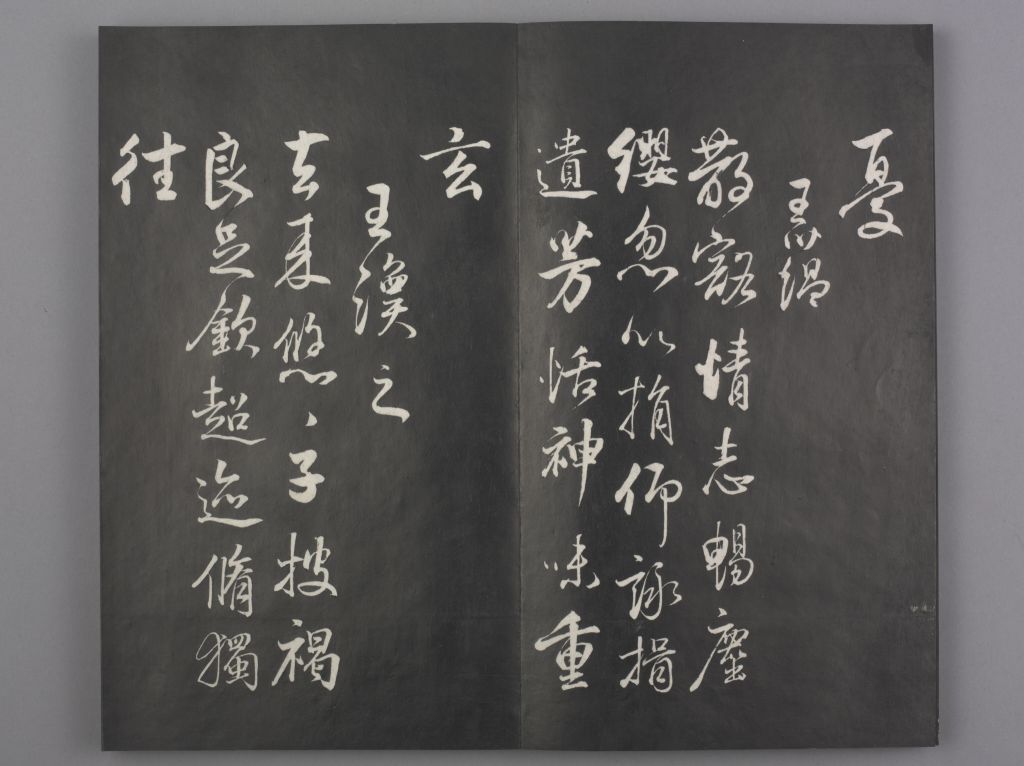 憂
王蘊
散豁情志暢塵
纓忽以捐仰詠揖
遺芳恬神味重
玄
王渙之
去来悠〻子披褐
良足欽超迹脩獨
往